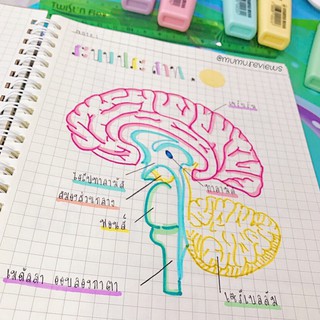 TWIST'N FLEX
ระบบประสาท.
@mumureviews
เซรีบรัม
ไฮโปทาลามัส
ทาลามัส
สมองส่วนกลาง
พอนส์
เมดัลลา ออบลองกาตา
เซรีเบลลัม